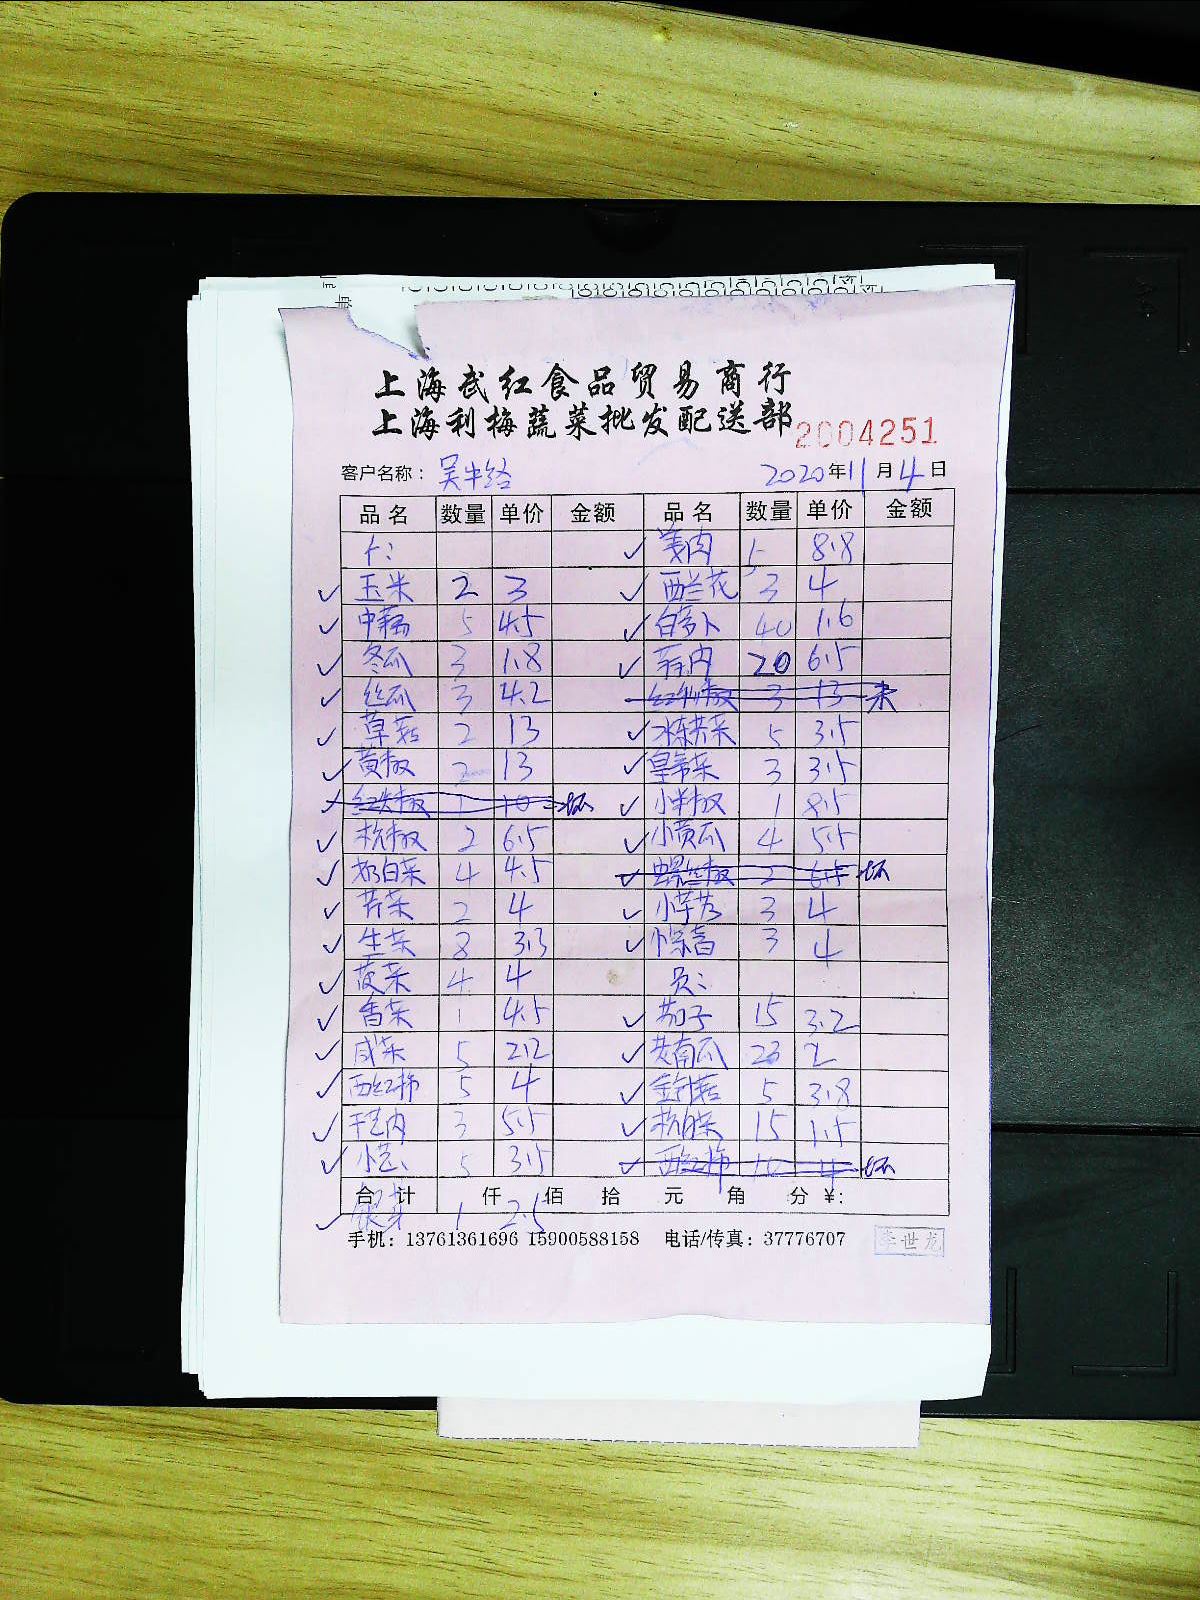 上海武红食品贸易商行
上海利梅蔬菜批发配送部
2004251
客户名称：吴中路 2020年11月4日
品名 数量 单价 金额 品名 数量 单价 金额
个： 姜肉 5 8.8
玉米 2 3 西兰花 3 4
中藕 5 4.5 白萝卜 40 1.6
冬瓜 3 1.8 蒜肉 20 6.5
丝瓜 3 4.2 3 13 未
草菇 2 13 冰冻芹菜 5 3.5
黄椒 2 13 皇帝菜 3 3.5
红尖椒 1 10 坏 小米椒 1 8.5
杭椒 2 6.5 小黄瓜 4 5.5
奶白菜 4 4.5 螺丝椒 2 6.5 坏
芹菜 2 4 小芋艿 3 4
生菜 8 3.3 3 4
菠菜 4 4 员：
香菜 1 4.5 茄子 15 3.2
咸菜 5 2.2 老南瓜 23 2
西红柿 5 4 金针菇 5 3.8
干艺肉 3 5.5 杭白菜 15 1.5
小芒 5 3.5 西红柿 10 4 坏
合计 仟 佰 拾 元 角 分 ¥:
银芽 1 2.5
手机：13761361696 15900588158 电话/传真：37776707 李世龙